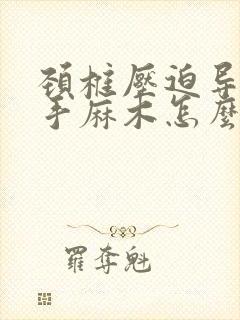 頚椎壓迫导
手麻木怎麼
羅奪魁